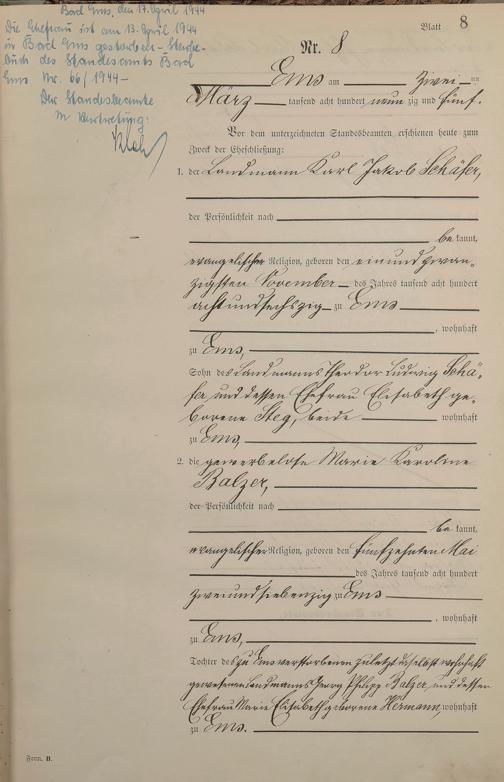 Bad Ems, den 17. April 1944
Die Ehefrau ist am 13. April 1944
in Bad Ems gestorben – Sterbe-
buch des Standesamts Bad
Ems Nr. 66/1944 –
Der Standesbeamte
In Vertretung:
Blatt 8
Nr. 8
Ems am zwei-ten
März tausend acht hundert neunzig und fünf.
Vor dem unterzeichneten Standesbeamten erschienen heute zum
Zweck der Eheschließung:
1. der Landmann Karl Jakob Schäfer,
der Persönlichkeit nach
bekannt,
evangelischer Religion, geboren den einundzwan-
zigsten November des Jahres tausend acht hundert
achtundsechszig zu Ems
, wohnhaft
zu Ems,
Sohn des Landmanns Theodor Ludwig Schä-
fer und dessen Ehefrau Elisabeth ge-
borene Steg, beide wohnhaft
zu Ems,
2. die gewerbelose Marie Karoline
Balzer,
der Persönlichkeit nach
bekannt,
evangelischer Religion, geboren den fünfzehnten Mai
des Jahres tausend acht hundert
zweiundsiebenzig zu Ems
, wohnhaft
zu Ems,
Tochter des zu Ems verstorbenen zuletzt daselbst wohnhaft
gewesenen Landmanns Georg Philipp Balzer und dessen
Ehefrau Marie Elisabeth geborene Hermann, wohnhaft
zu Ems.
Form. B.